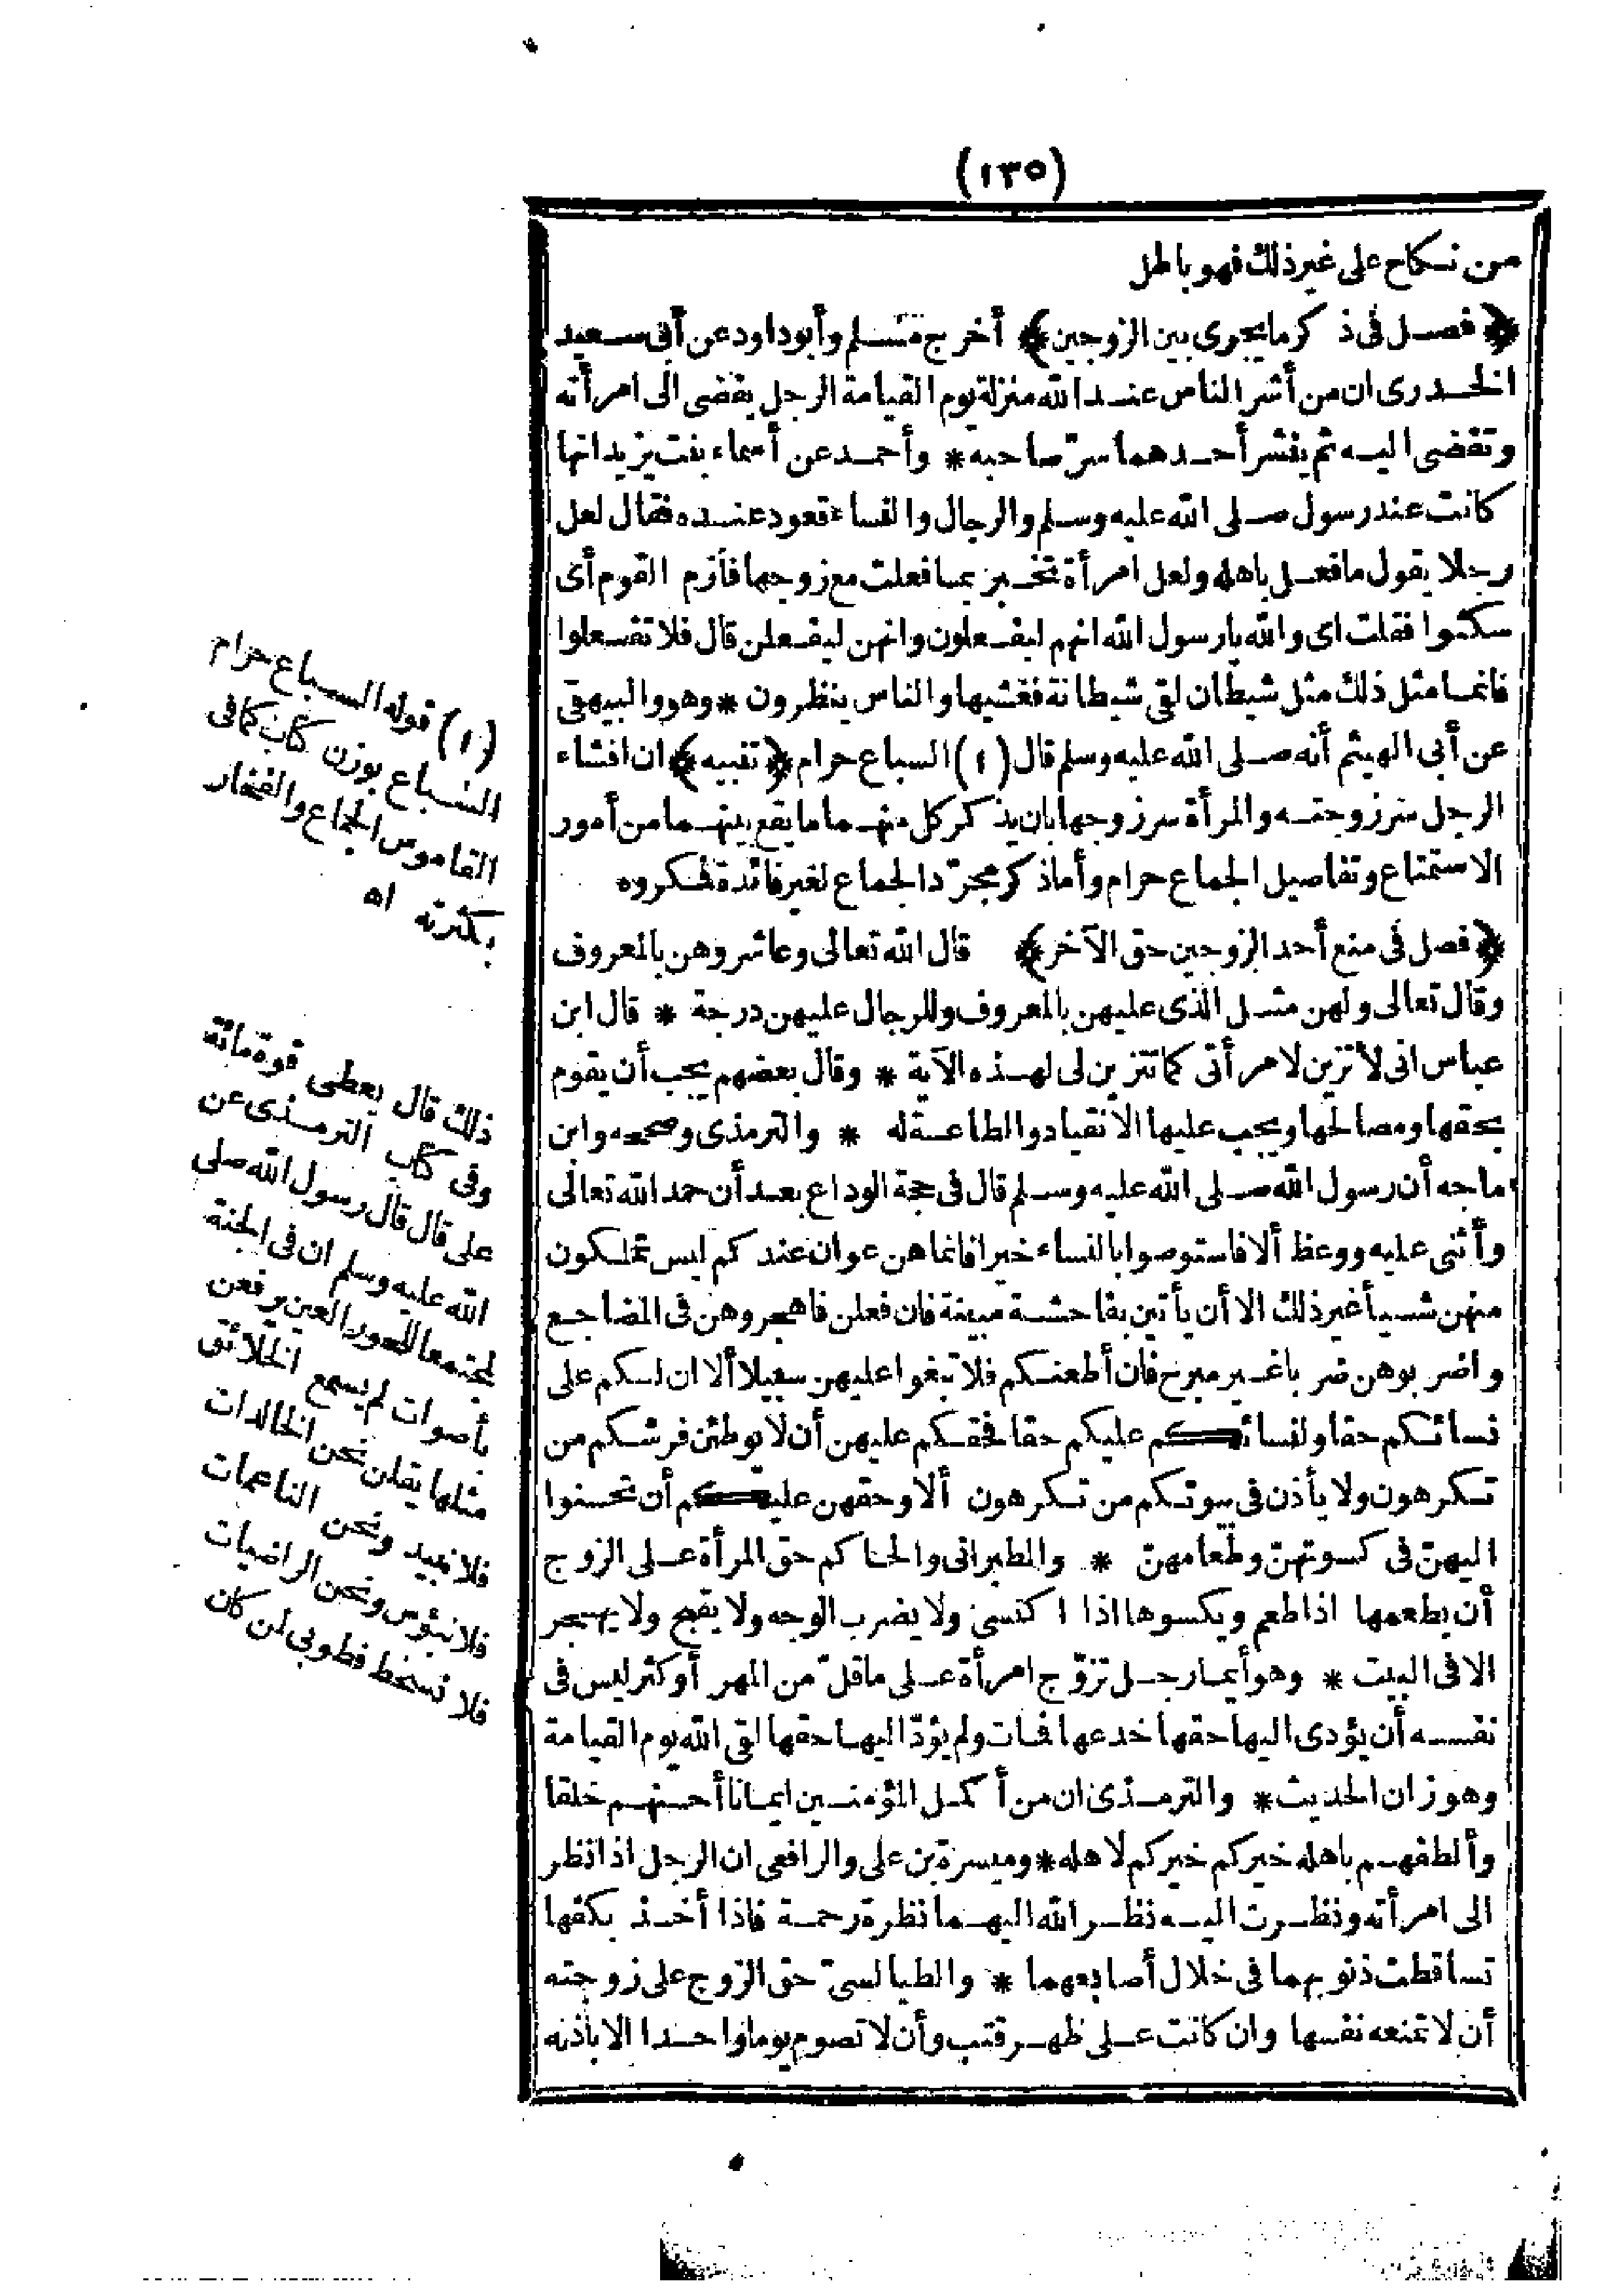 (١٣٥)
من نكاح على غير ذلك فهو باطل
﴿فصل فى ذكر ما يجرى بين الزوجين﴾ أخرج مسلم وأبو داود عن أبى سعيد
الخدرى ان من أشر الناس عند الله منزلة يوم القيامة الرجل يفضى الى امرأته
وتفضى اليه ثم ينشر أحدهما سرّ صاحبه * وأحمد عن أسماء بنت يزيد انها
كانت عند رسول صلى الله عليه وسلم والرجال والنساء قعود عنده فقال لعل
رجلا يقول ما فعل باهله ولعل امرأة تخبر بما فعلت مع زوجها فأزم القوم أى
سكتوا فقلت اى والله يارسول الله انهم ليفعلون وانهن ليفعلن قال فلا تفعلوا
فانما مثل ذلك مثل شيطان لقى شيطانة فغشيها والناس ينظرون * وهو والبيهقى
عن أبى الهيثم أنه صلى الله عليه وسلم قال (١) السباع حرام ﴿تنبيه﴾ ان افشاء
الرجل سر زوجته والمرأة سر زوجها بان يذكر كل منهما ما يقع بينهما من أمور
الاستمتاع وتفاصيل الجماع حرام وأما ذكر مجرّد الجماع لغير فائدة فمكروه
﴿فصل فى منع أحد الزوجين حق الآخر﴾ قال الله تعالى وعاشروهن بالمعروف
وقال تعالى ولهن مثل الذى عليهن بالمعروف وللرجال عليهن درجة * قال ابن
عباس انى لأتزين لامرأتى كما تتزين لى لهذه الآية * وقال بعضهم يجب أن يقوم
بحقها ومصالحها ويجب عليها الانقياد والطاعة له * والترمذى وصححه وابن
ماجه أن رسول الله صلى الله عليه وسلم قال فى حجة الوداع بعد أن حمد الله تعالى
وأثنى عليه ووعظ ألا فاستوصوا بالنساء خيرا فانما هن عوان عندكم ليس تملكون
منهن شيأ غير ذلك الا أن يأتين بفاحشة مبينة فان فعلن فاهجروهن فى المضاجع
واضربوهن ضربا غير مبرح فان أطعنكم فلا تبغوا عليهن سبيلا ألا ان لكم على
نسائكم حقا ولنسائكم عليكم حقا فحقكم عليهن أن لا يوطئن فرشكم من
تكرهون ولا يأذن فى بيوتكم من تكرهون ألا وحقهن عليكم أن تحسنوا
اليهنّ فى كسوتهنّ وطعامهنّ * والطبرانى والحاكم حق المرأة على الزوج
أن يطعمها اذا طعم ويكسوها اذا اكتسى ولا يضرب الوجه ولا يقبح ولا يهجر
الا فى البيت * وهو أيما رجل تزوّج امرأة على ما قلّ من المهر أو كثر ليس فى
نفسه أن يؤدى اليها حقها خدعها فمات ولم يؤدّ اليها حقها لقى الله يوم القيامة
وهو زان الحديث * والترمذى ان من أكمل المؤمنين ايمانا أحسنهم خلقا
وألطفهم باهله خيركم خيركم لاهله * وميسرة بن على والرافعى ان الرجل اذا نظر
الى امرأته ونظرت اليه نظر الله اليهما نظرة رحمة فاذا أخذ بكفها
تساقطت ذنوبهما فى خلال أصابعهما * والطيالسىّ حق الزوج على زوجته
أن لا تمنعه نفسها وان كانت على ظهر قتب وأن لا تصوم يوما واحدا الا باذنه
(١) قوله السباع حرام
السباع بوزن كتاب كما فى
القاموس الجماع والفخار
بكثرته اه
ذلك قال يعطى قوة مائة
وفى كتاب الترمذى عن
على قال قال رسول الله صلى
الله عليه وسلم ان فى الجنة
لمجتمعا للحور العين يرفعن
بأصوات لم يسمع الخلائق
مثلها يقلن نحن الخالدات
فلا نبيد ونحن الناعمات
فلا نبؤس ونحن الراضيات
فلا نسخط فطوبى لمن كان